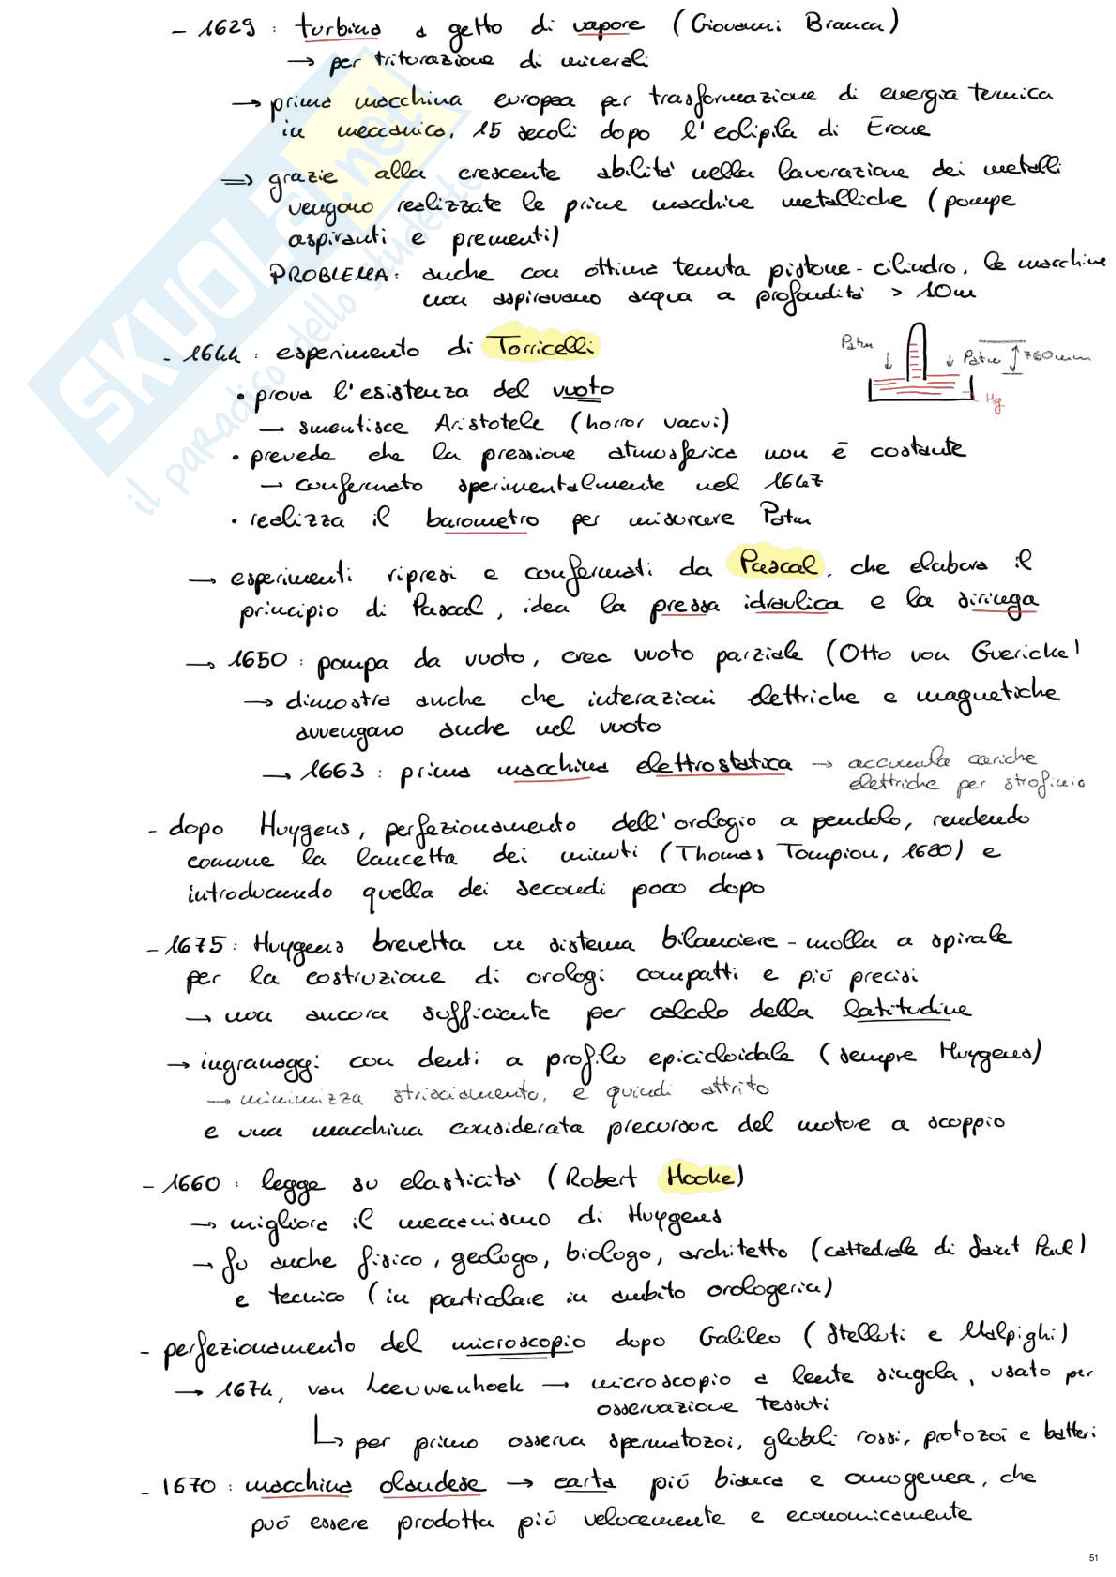 - 1629 : turbina a getto di vapore (Giovanni Branca)
→ per triturazione di minerali
→ prima macchina europea per trasformazione di energia termica
in meccanica, 15 secoli dopo l'eolipila di Erone
⇒ grazie alla crescente abilità nella lavorazione dei metalli
vengono realizzate le prime macchine metalliche (pompe
aspiranti e prementi)
PROBLEMA: anche con ottima tenuta pistone-cilindro, le macchine
non aspiravano acqua a profondità > 10m
- 1644 : esperimento di Torricelli
Patm
Patm
760mm
Hg
• prova l'esistenza del vuoto
→ smentisce Aristotele (horror vacui)
• prevede che la pressione atmosferica non è costante
→ confermato sperimentalmente nel 1647
• realizza il barometro per misurare Patm
→ esperimenti ripresi e confermati da Pascal, che elabora il
principio di Pascal, idea la pressa idraulica e la siringa
→ 1650 : pompa da vuoto, crea vuoto parziale (Otto von Guericke)
→ dimostra anche che interazioni elettriche e magnetiche
avvengano anche nel vuoto
→ 1663 : prima macchina elettrostatica → accumula cariche
elettriche per strofinio
- dopo Huygens, perfezionamento dell'orologio a pendolo, rendendo
comune la lancetta dei minuti (Thomas Tompion, 1680) e
introducendo quella dei secondi poco dopo
- 1675 : Huygens brevetta un sistema bilanciere-molla a spirale
per la costruzione di orologi compatti e più precisi
→ non ancora sufficiente per calcolo della latitudine
→ ingranaggi con denti a profilo epicicloidale (sempre Huygens)
→ minimizza strisciamento, e quindi attrito
e una macchina considerata precursore del motore a scoppio
- 1660 : legge su elasticità (Robert Hooke)
→ migliora il meccanismo di Huygens
→ fu anche fisico, geologo, biologo, architetto (cattedrale di Saint Paul)
e tecnico (in particolare in ambito orologeria)
- perfezionamento del microscopio dopo Galileo (Stelluti e Malpighi)
→ 1674, van Leeuwenhoek → microscopio a lente singola, usato per
osservazione tessuti
↳ per primo osserva spermatozoi, globuli rossi, protozoi e batteri
- 1670 : macchina olandese → carta più bianca e omogenea, che
può essere prodotta più velocemente e economicamente
51
SKUOLA.net
il paradiso dello studente